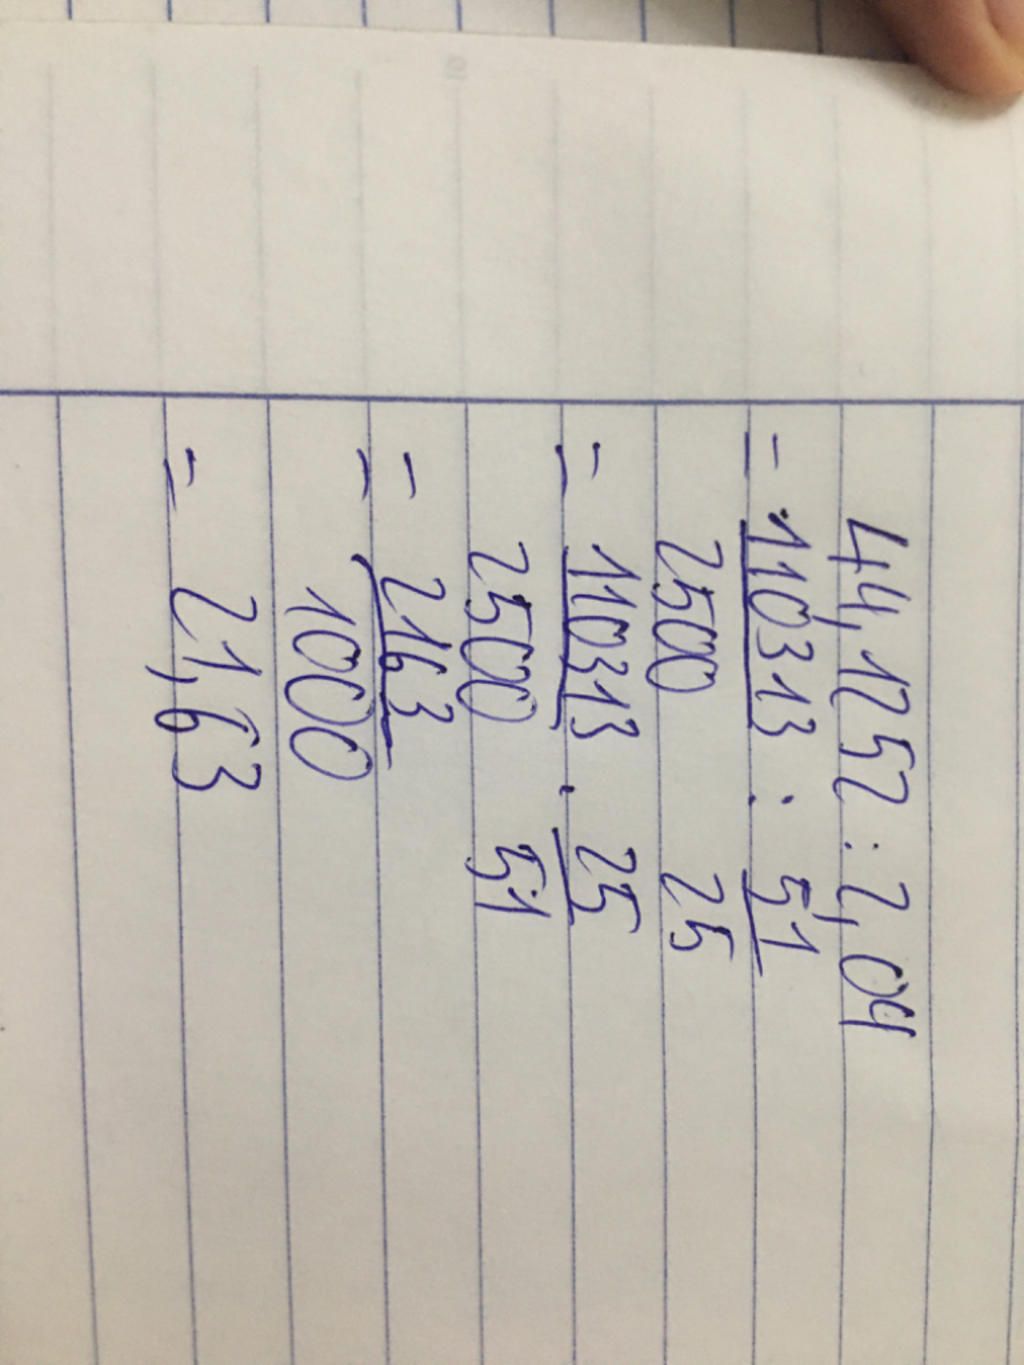 44,1252 : 2,04
= 110313 : 51
2500 25
= 110313 . 25
2500 51
= 2163
1000
= 21,63